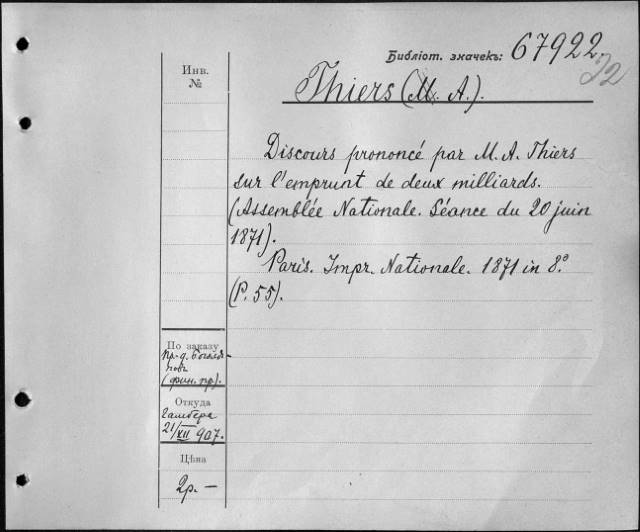 Библіот. значекъ: 67922.
Инв.
№
Thiers (M. A.).
Discours prononcé par M. A. Thiers
sur l'emprunt de deux milliards.
(Assemblée Nationale. Séance du 20 juin
1871).
Paris. Impr. Nationale. 1871 in 8°
(P. 55).
По заказу
пр-д. Боголѣ-
повъ
(фин. пр.).
Откуда
21/XII 907.
Цѣна
2р. —